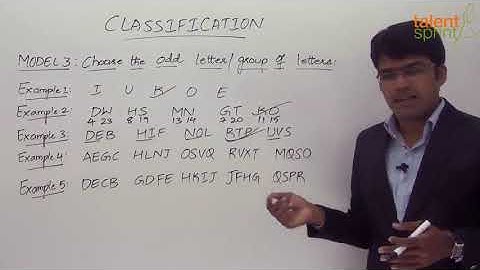 talent
sprint
CLASSIFICATION
MODEL 3: Choose the odd letter/group of letters:
Example 1: I U K O E
Example 2: DW HS MN GT KO
4 23 8 19 13 14 7 20 11 15
Example 3: DFB HIF NQL BTP UVS
Example 4: AEGC HLNJ OSVQ RVXT MQSO
Example 5: DECB GDFE HKIJ JFHG QSPR